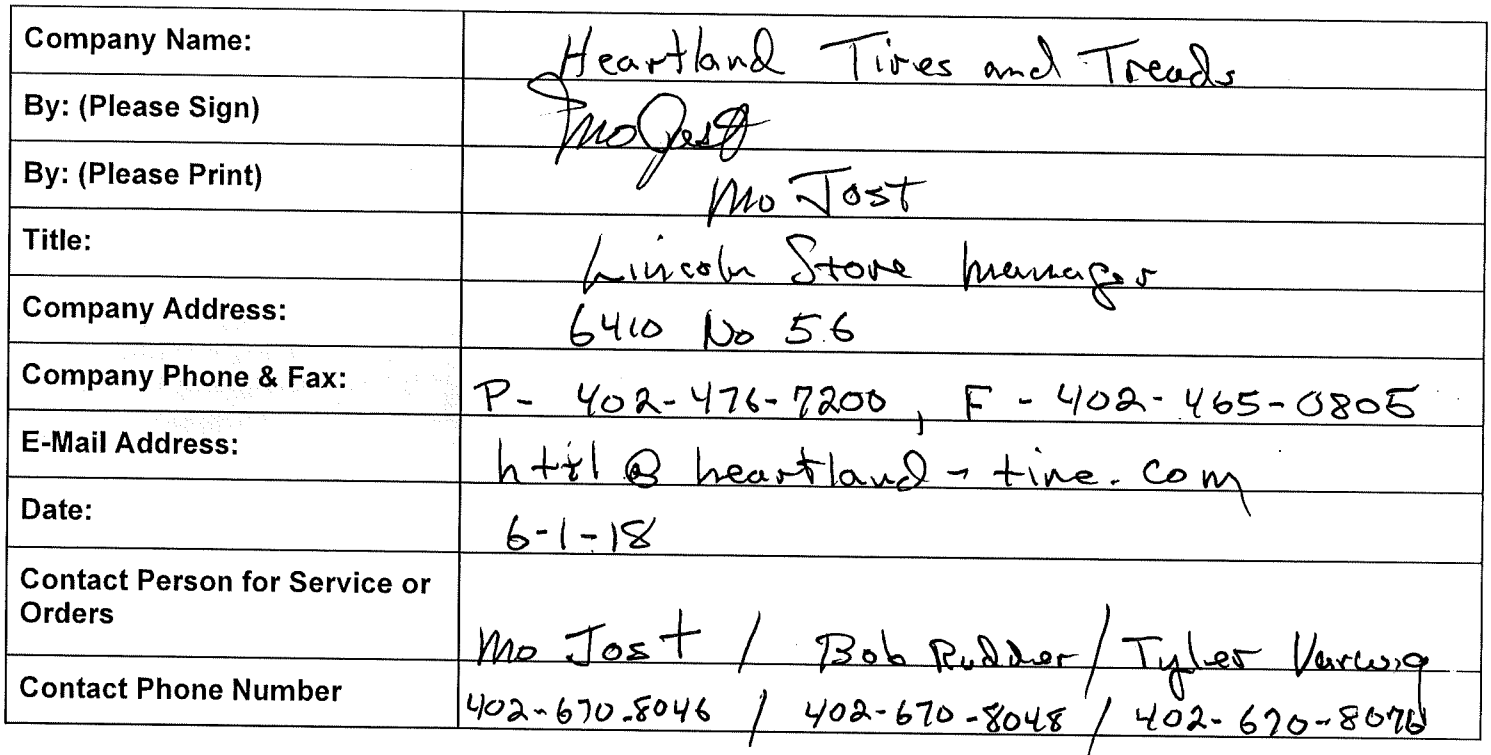 Company Name: Heartland Tires and Treads
By: (Please Sign) Mo Jost
By: (Please Print) Mo Jost
Title: Lincoln Store Manager
Company Address: 6410 No 56
Company Phone & Fax: P- 402-476-7200, F - 402-465-0805
E-Mail Address: @ heartland - tire. com
Date: 6-1-18
Contact Person for Service or
Orders Mo Jost / Bob Rudder / Tyler
Contact Phone Number 402-670-8046 / 402-670-8048 /